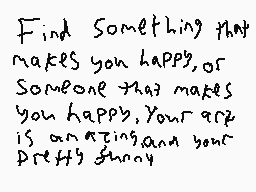 Find something that
makes you happy, or
someone that makes
you happy, your art
is amazing, and your
pretty funny